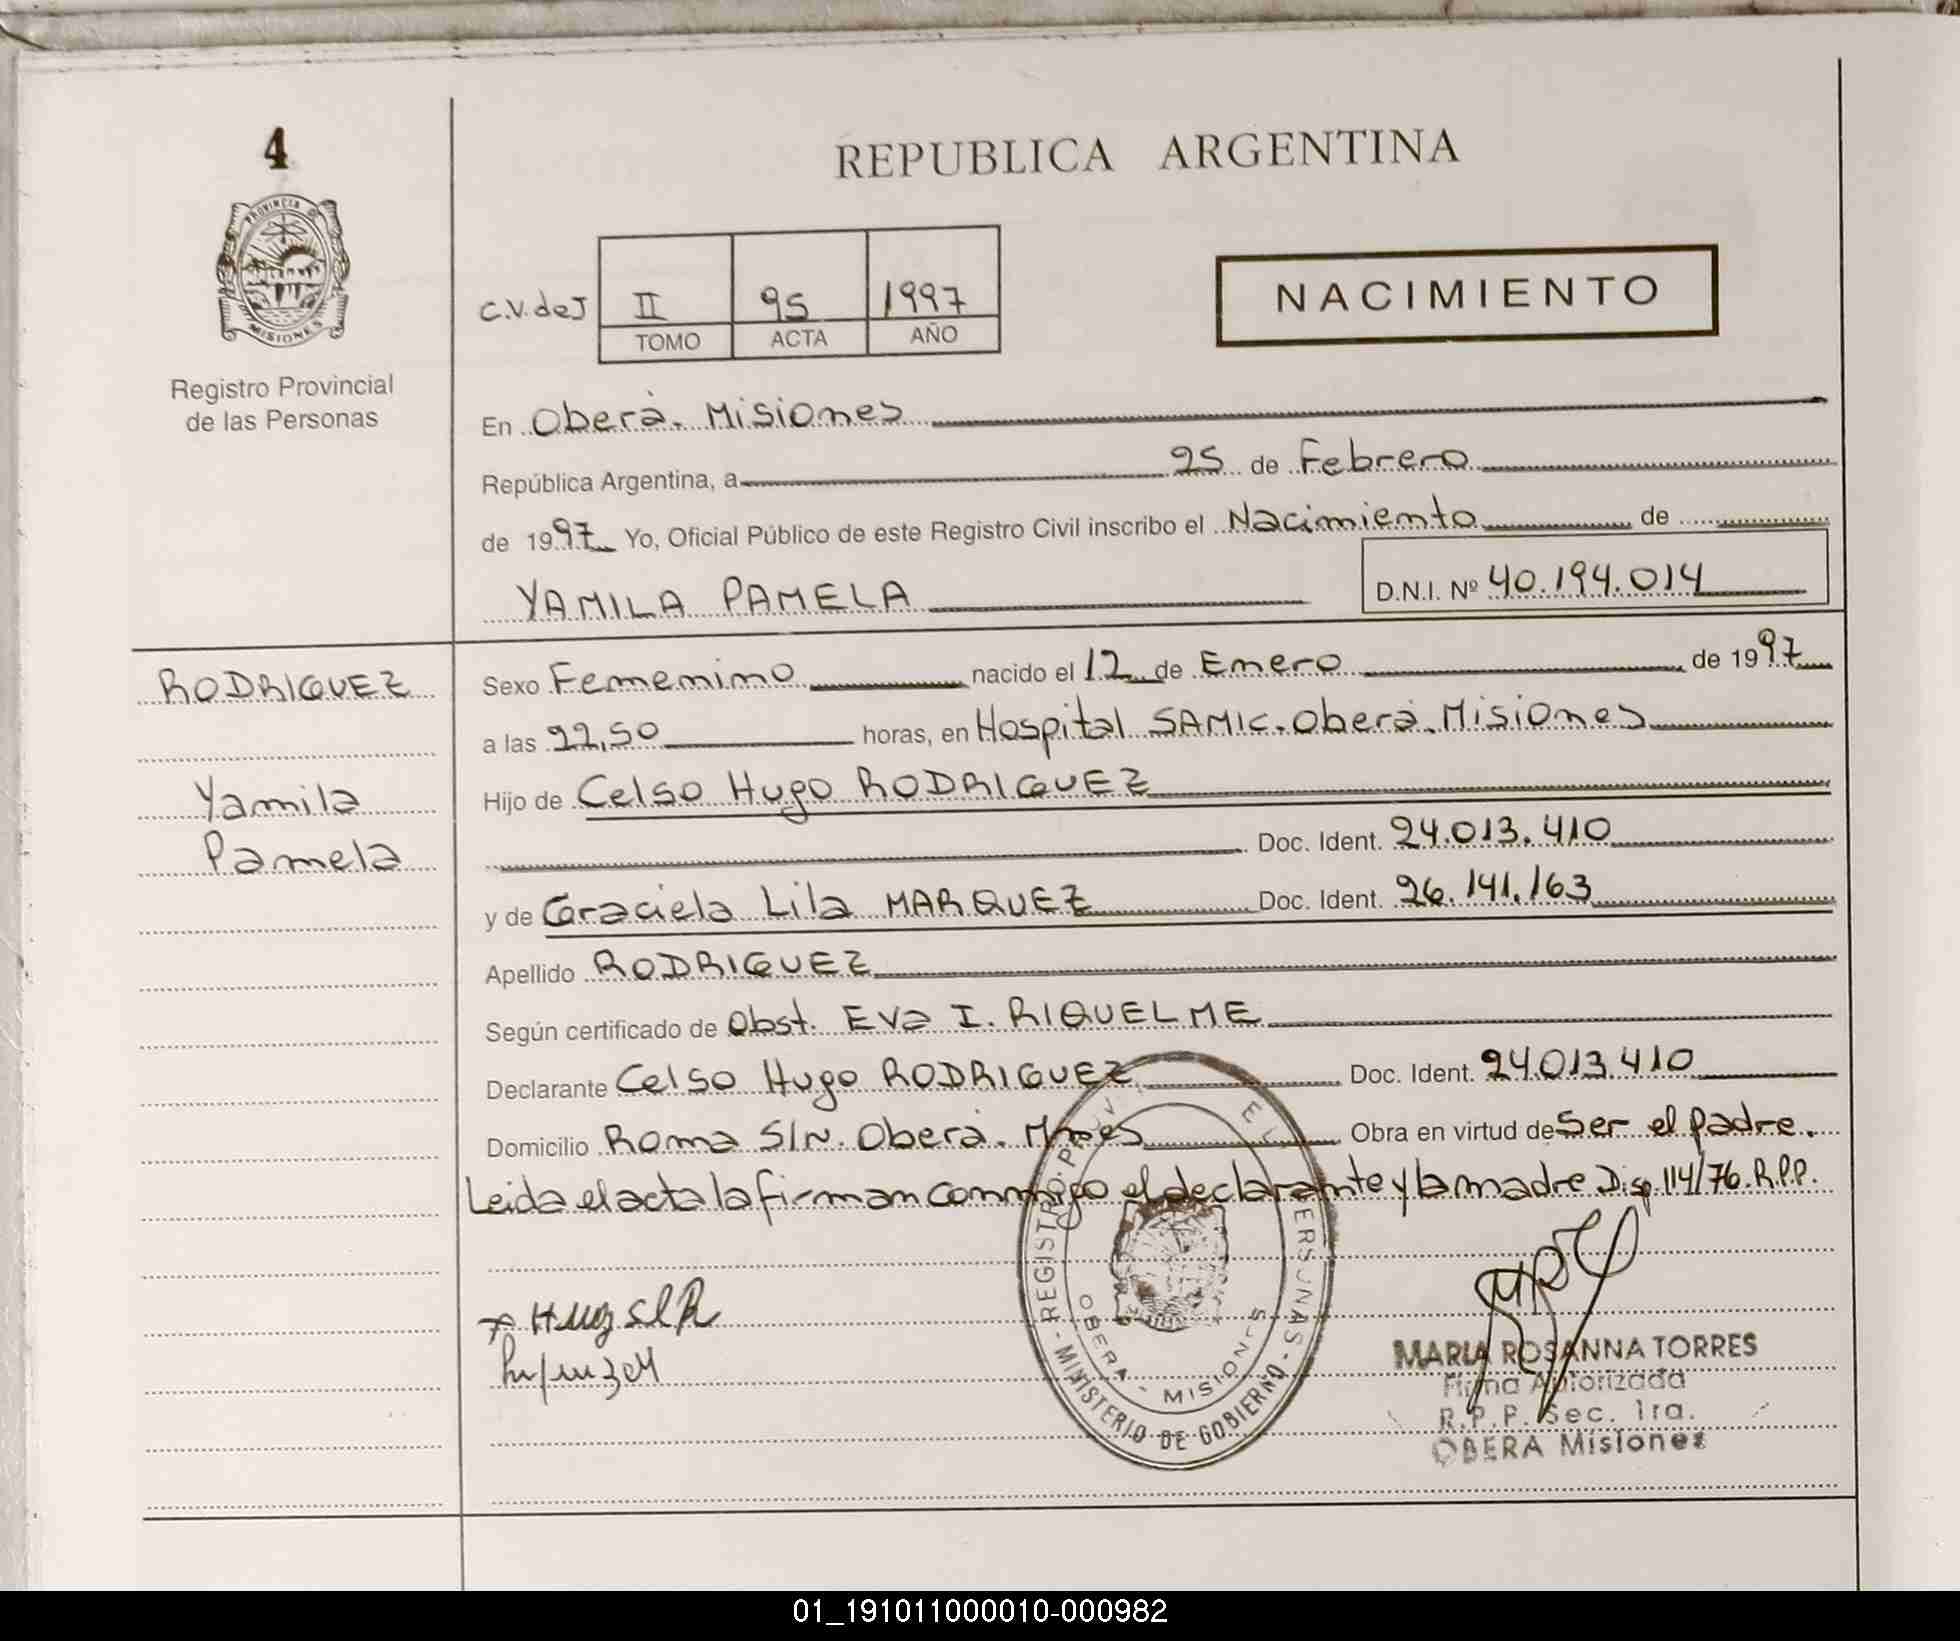 4
PROVINCIA D
MISIONES
Registro Provincial
de las Personas
REPUBLICA ARGENTINA
C.V.deJ II 95 1997
TOMO ACTA AÑO
NACIMIENTO
En Oberà. Misiones
República Argentina, a 25 de Febrero
de 1997 Yo, Oficial Público de este Registro Civil inscribo el Nacimiento de
YAMILA PAMELA D.N.I. Nº 40.194.014
RODRIGUEZ
Yamila
Pamela
Sexo Femenino nacido el 12 de Enero de 1997
a las 22,50 horas, en Hospital SAMIC. Oberà. Misiones
Hijo de Celso Hugo RODRIGUEZ
Doc. Ident. 24.013.410
y de Graciela Lila MARQUEZ Doc. Ident. 26.141.163
Apellido RODRIGUEZ
Según certificado de Obst. Eva I. RIQUELME
Declarante Celso Hugo RODRIGUEZ Doc. Ident. 24.013.410
Domicilio Roma S/N. Oberà. Mnes Obra en virtud de Ser el padre.
Leida el acta la firman conmigo el declarante y la madre Disp. 114/76. R.P.P.
REGISTRO PROV ERSONAS
MINISTERIO DE GOBIERNO
OBERA - MISIONES
MARIA ROSANNA TORRES
Firma Autorizada
R.P.P. Sec. 1ra.
OBERA Misiones
01_191011000010-000982